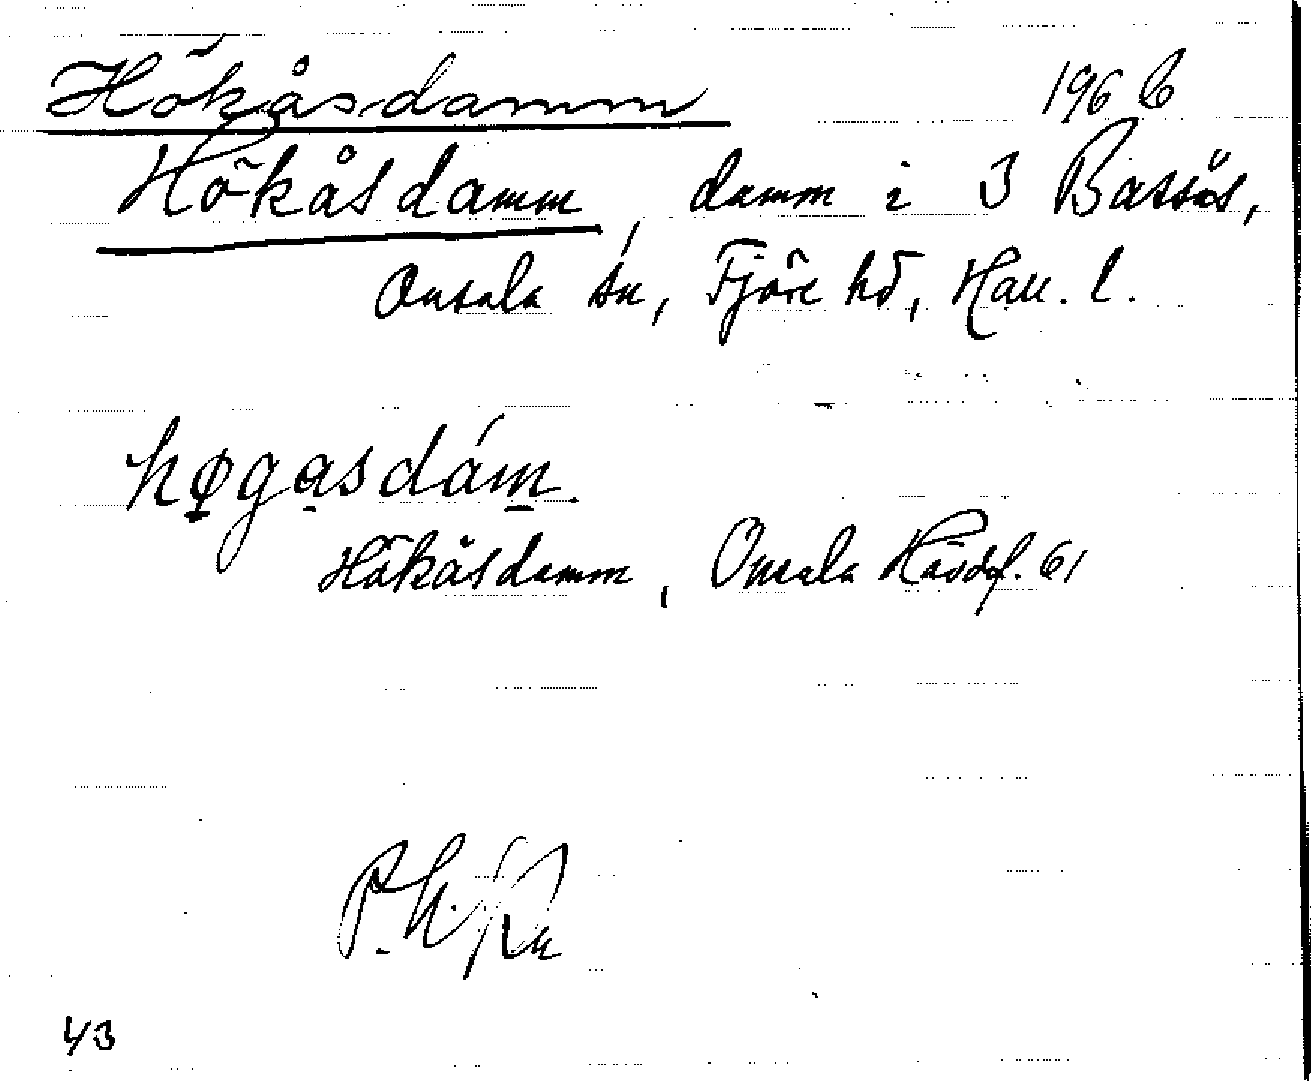 Hökåsdamm 196 b
Hökåsdamm, damm i 3 Bassås,
Onsala sn, Fjäre hd, Hall. l.
høgasdám.
Hökåsdamm, Onsala Hävdef. 61
P. H.
43